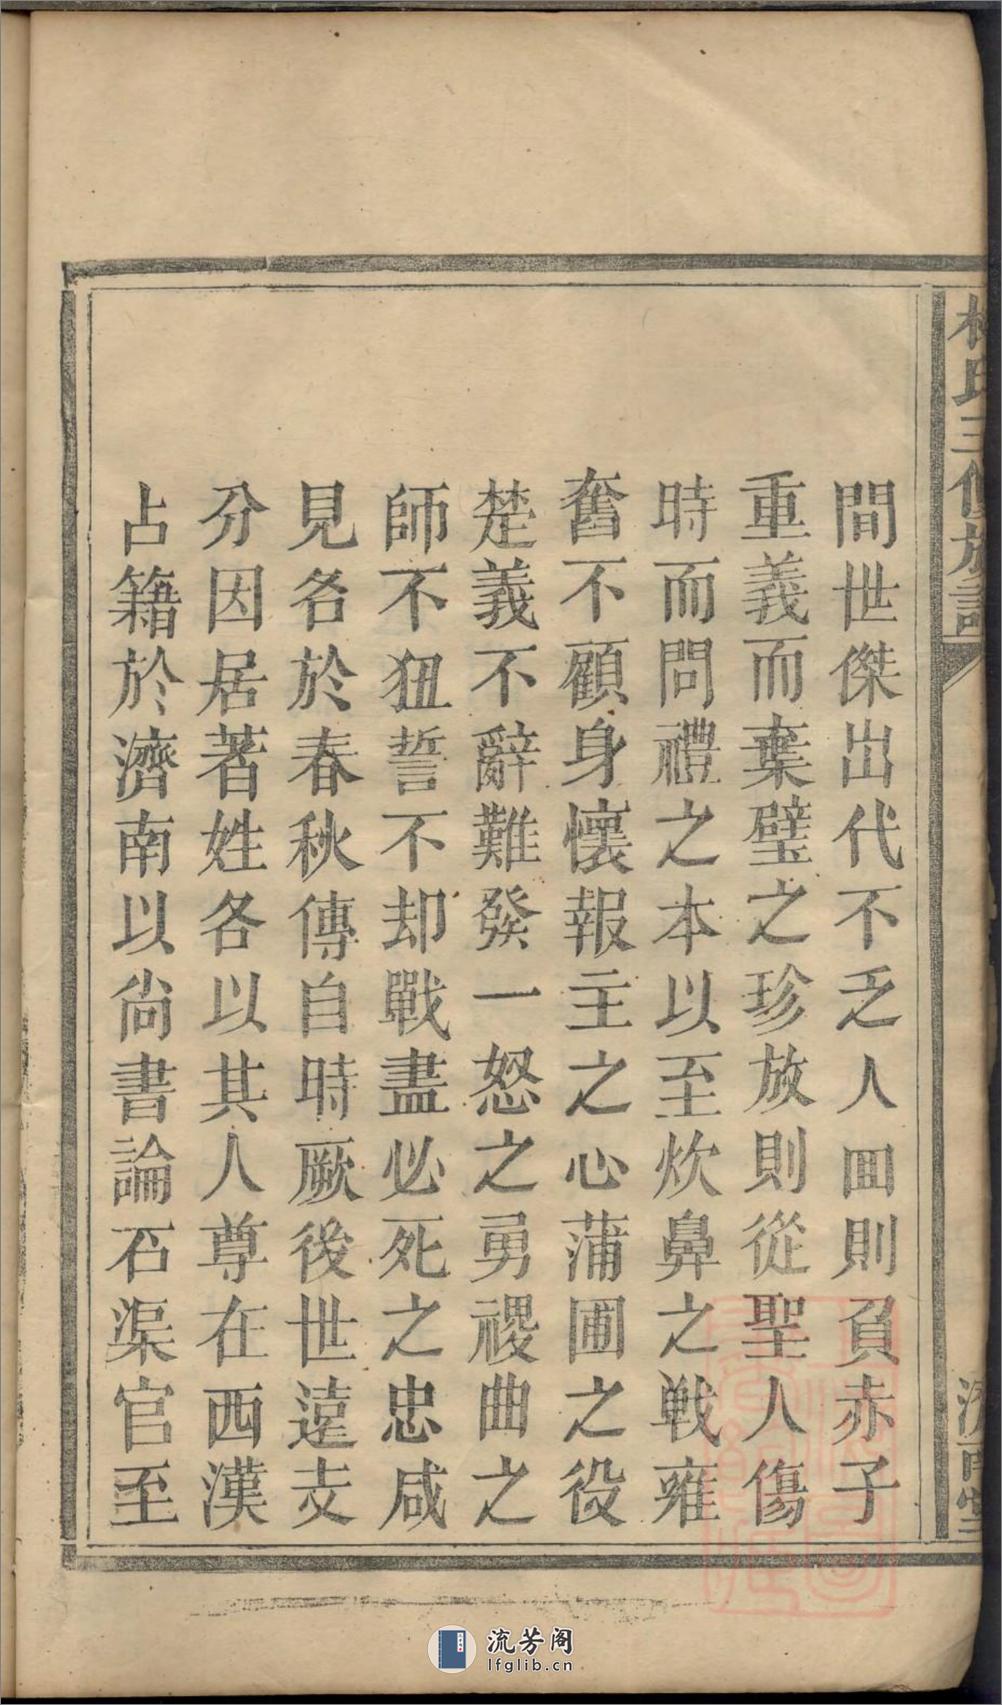 林氏三修族譜
濟南堂
間世傑出代不乏人囬則負赤子
重義而棄璧之珍放則從聖人傷
時而問禮之本以至炊鼻之戰雍
奮不顧身懷報主之心蒲圃之役
楚義不辭難發一怒之勇禝曲之
師不狃誓不却戰盡必死之忠咸
見各於春秋傳自時厥後世遠支
分因居著姓各以其人尊在西漢
占籍於濟南以尙書論石渠官至
流芳阁
lfglib.cn